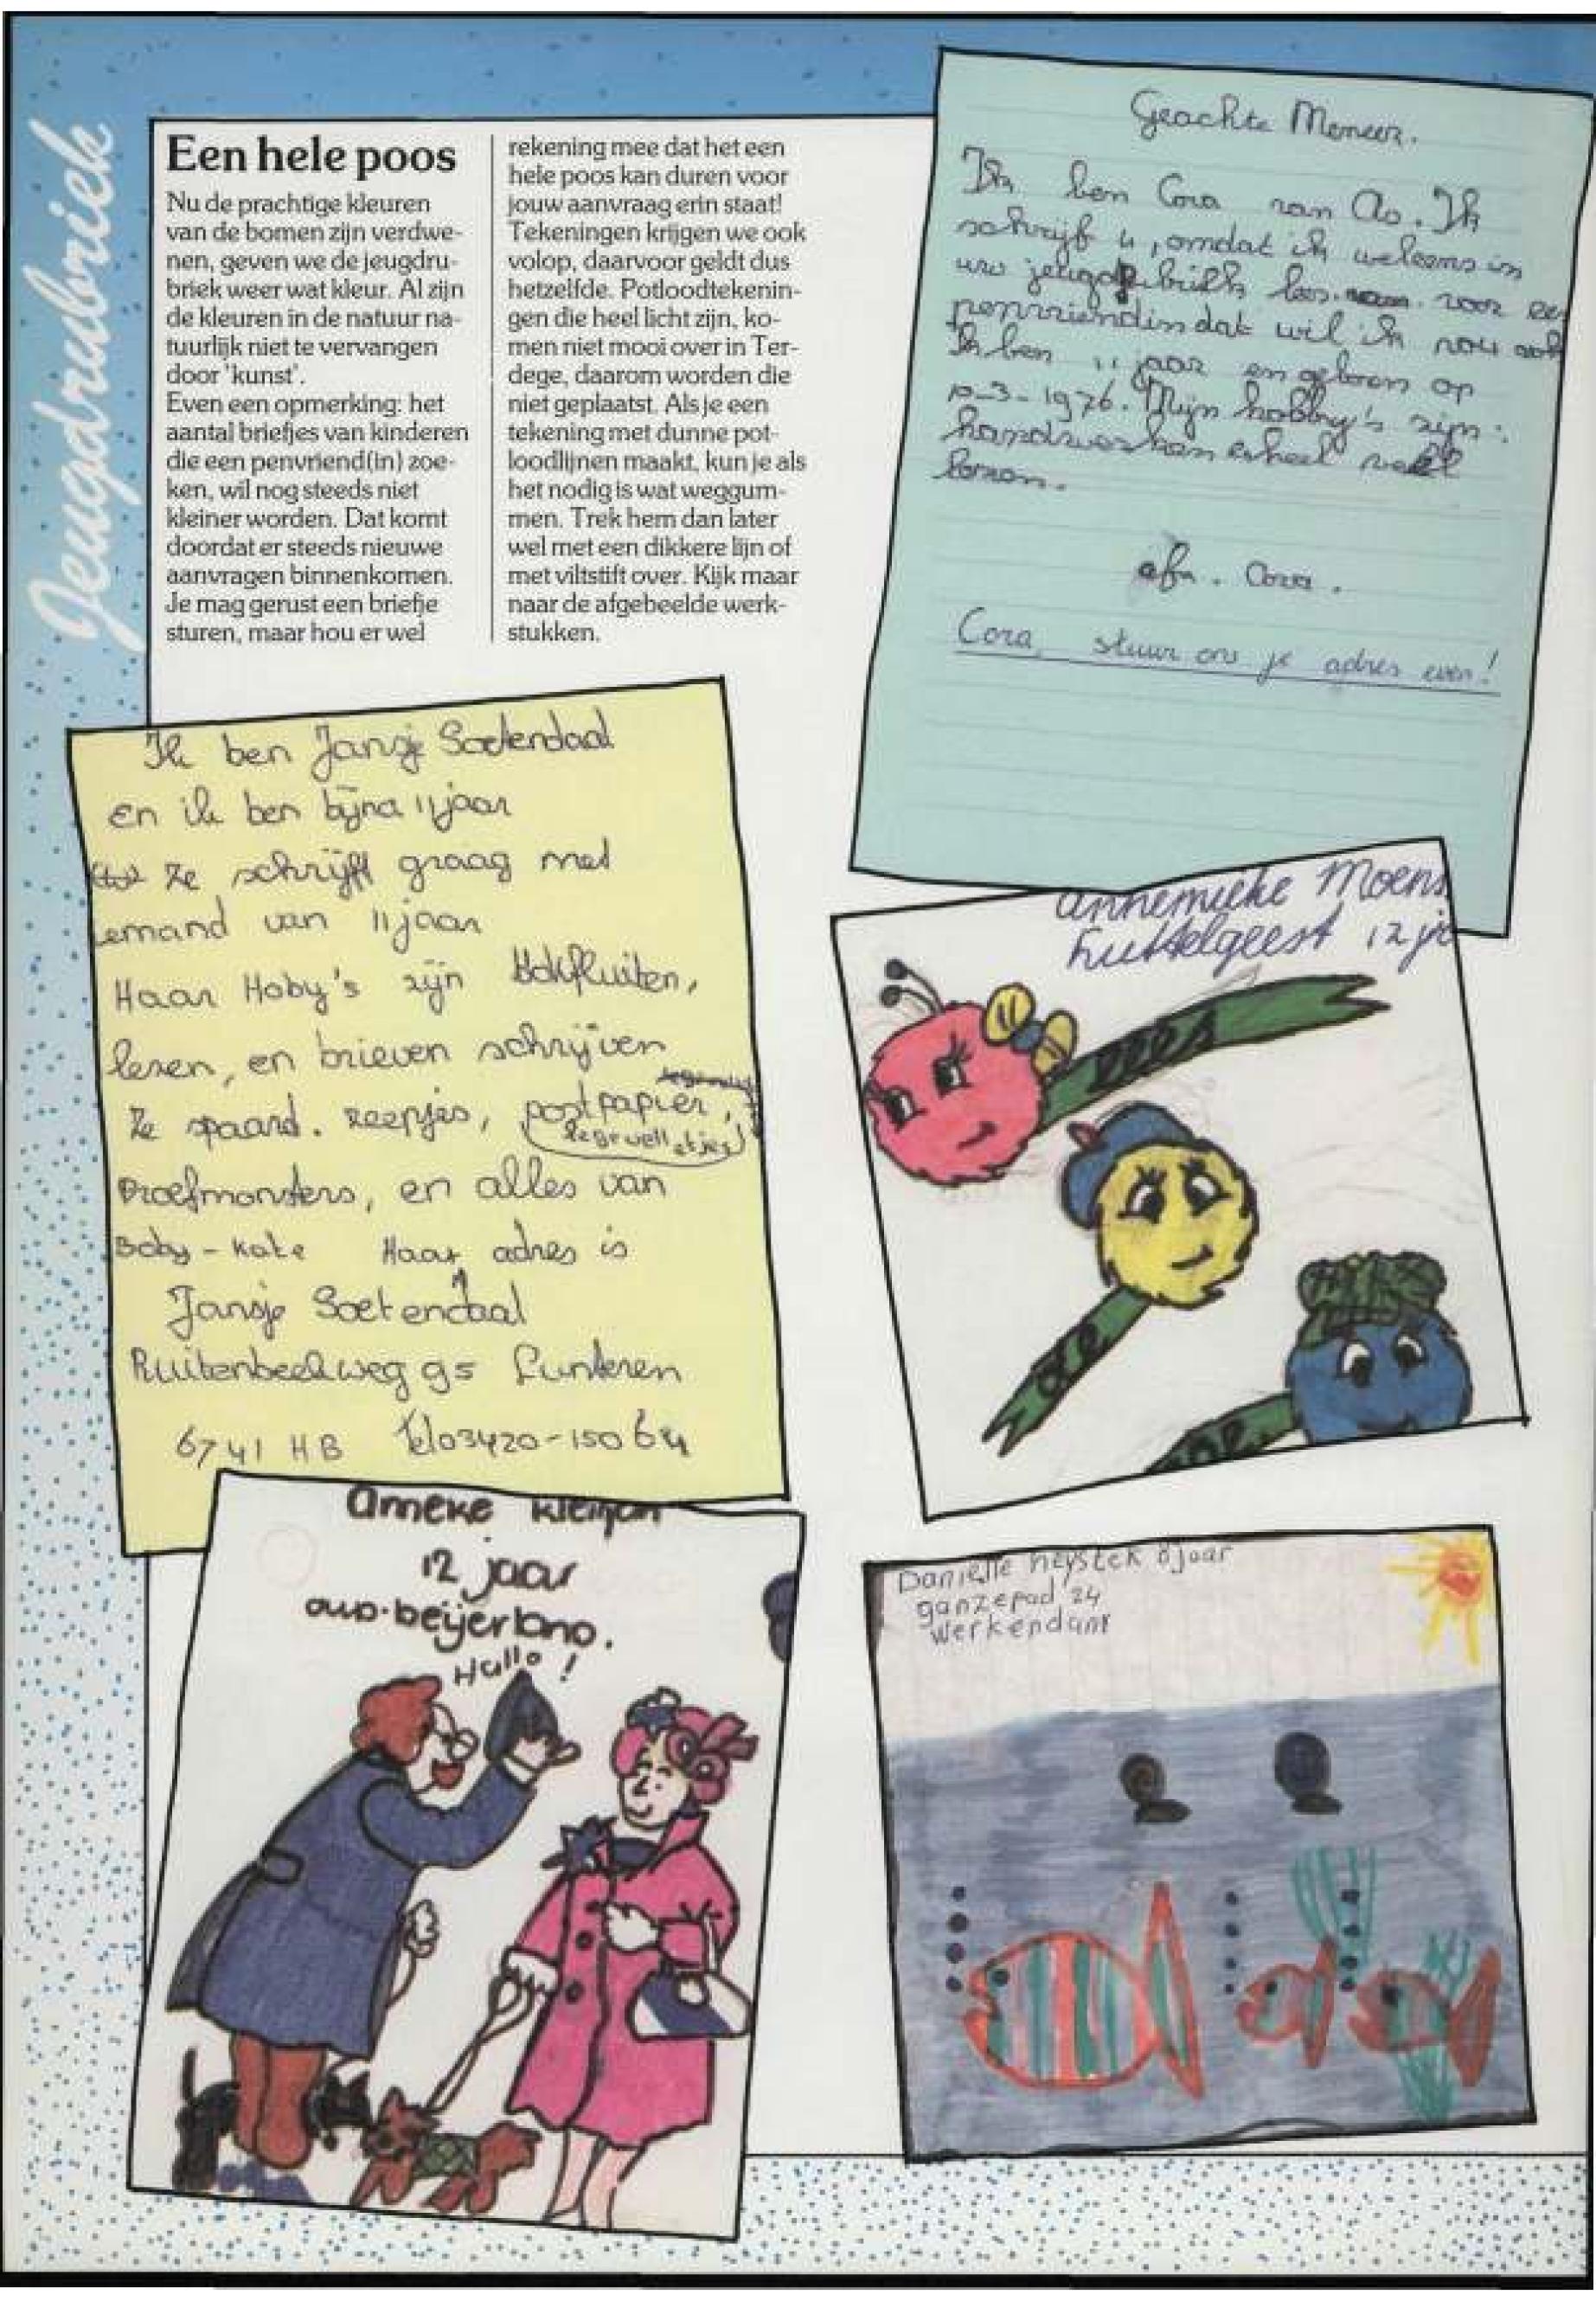 Jeugdrubriek
Een hele poos
Nu de prachtige kleuren
van de bomen zijn verdwe-
nen, geven we de jeugdru-
briek weer wat kleur. Al zijn
de kleuren in de natuur na-
tuurlijk niet te vervangen
door 'kunst'.
Even een opmerking: het
aantal briefjes van kinderen
die een penvriend(in) zoe-
ken, wil nog steeds niet
kleiner worden. Dat komt
doordat er steeds nieuwe
aanvragen binnenkomen.
Je mag gerust een briefje
sturen, maar hou er wel
rekening mee dat het een
hele poos kan duren voor
jouw aanvraag erin staat!
Tekeningen krijgen we ook
volop, daarvoor geldt dus
hetzelfde. Potloodtekenin-
gen die heel licht zijn, ko-
men niet mooi over in Ter-
dege, daarom worden die
niet geplaatst. Als je een
tekening met dunne pot-
loodlijnen maakt, kun je als
het nodig is wat weggum-
men. Trek hem dan later
wel met een dikkere lijn of
met viltstift over. Kijk maar
naar de afgebeelde werk-
stukken.
Geachte Meneer.
Ik ben Cora van As. Ik
schrijf u, omdat ik weleens in
uw lees voor een
penvriendin dat wil ik nou ook
Ik ben 11 jaar en geboren op
10-3-1976. Mijn hobby's zijn:
handwerken en heel veel
lezen.
afz. Cora.
Cora, stuur ons je adres even!
Ik ben Jansje Soetendaal
en ik ben bijna 11 jaar
Ze schrijft graag met
iemand van 11 jaar
Haar Hoby's zijn blokfluiten,
lezen, en brieven schrijven
Ze spaard. zeepjes, postpapier,
losse velletjes
Proefmonsters, en alles van
Boby-Kate Haar adres is
Jansje Soetendaal
Ruitenbeekweg 95 Lunteren
6741 HB Tel 03420-15064
Annemieke Moens
Luttelgeest 12 jr
wees
de
Anneke Kleijan
12 jaar
oud-beijerland.
Hallo!
Danielle heystek 8 jaar
ganzepad 24
Werkendam